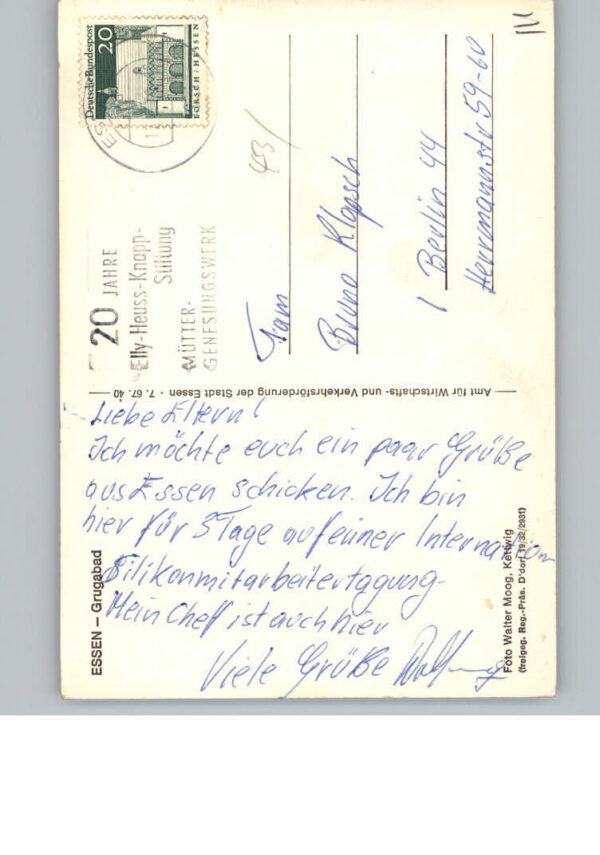 Deutsche Bundespost
20
LORSCH / HESSEN
20 JAHRE
Elly-Heuss-Knapp-
Stiftung
MÜTTER-
GENESUNGSWERK
453/
Fam
Bruno Klapsch
1 Berlin 44
Herrmannstr 59-60
Amt für Wirtschafts- und Verkehrsförderung der Stadt Essen · 7. 67. 40
Liebe Eltern!
Ich möchte euch ein paar Grüße
aus Essen schicken. Ich bin
hier für 3 Tage auf einer Internation
Silikonmitarbeitertagung.
Mein Chef ist auch hier
Viele Grüße Wolfgang
ESSEN – Grugabad
Foto Walter Moog, Kettwig
(freigeg. Reg.-Präs. D'dorf 19/32/2931)